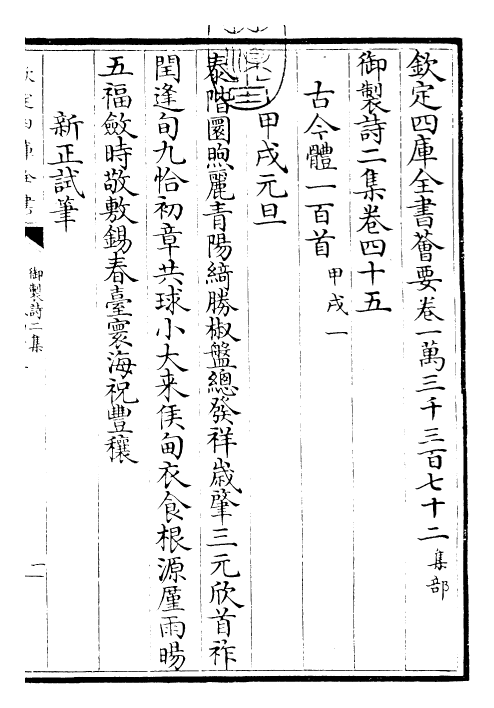 欽定四庫全書薈要卷一萬三千三百七十二集部
御製詩二集卷四十五
古今體一百首甲戌一
甲戌元旦
泰階圜煦麗青陽綺勝椒盤總發祥歳肇三元欣首祚
閏逢旬九恰初章共球小大来侯甸衣食根源厪雨暘
五福斂時敬敷錫春臺寰海祝豐穰
新正試筆
欽定四庫全書
御製詩二集